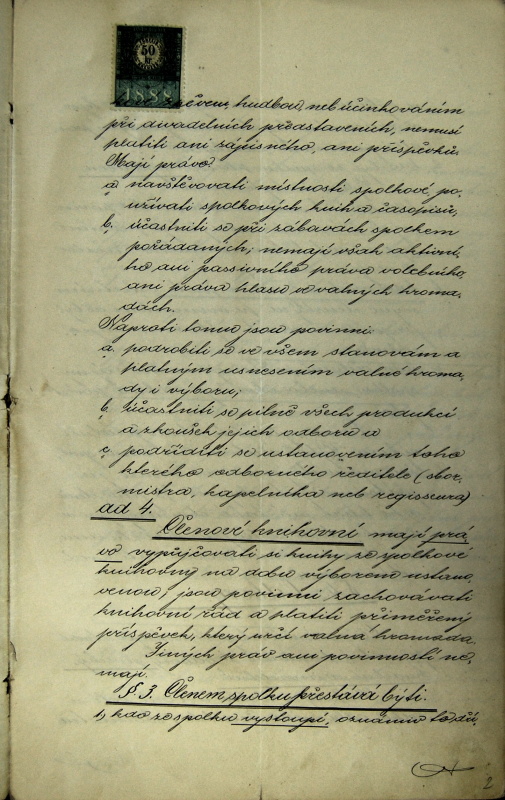 50
kr
1888
zpěvem, hudbou, neb účinkováním
při divadelních představeních, nemusí
platiti ani zápisného, ani příspěvků.
Mají právo:
a, navštěvovati místnosti spolkové po-
užívati spolkových knih a časopisů,
b, účastniti se při zábavách spolkem
pořádaných; nemají však aktivní-
ho ani passivního práva volebního
ani práva hlasu ve valných hroma-
dách.
Naproti tomu jsou povinni:
a, podrobiti se ve všem stanovám a
platným usnesením valné hroma-
dy i výboru;
b, účastniti se pilně všech produkcí
a zkoušek jejich odboru a
c, podříditi se ustanovením toho
kterého odborného ředitele (sbor-
mistra, kapelníka neb regisseura)
ad 4.
Členové knihovní mají prá-
vo vypůjčovati si knihy ze spolkové
knihovny na dobu výborem ustano-
venou, jsou povinni zachovávati
knihovní řád a platiti přiměřený
příspěvek, který určí valná hromada.
Jiných práv ani povinností ne-
mají.
§ 3. Členem spolku přestává býti:
1, kdo ze spolku vystoupí, oznámiv to
2